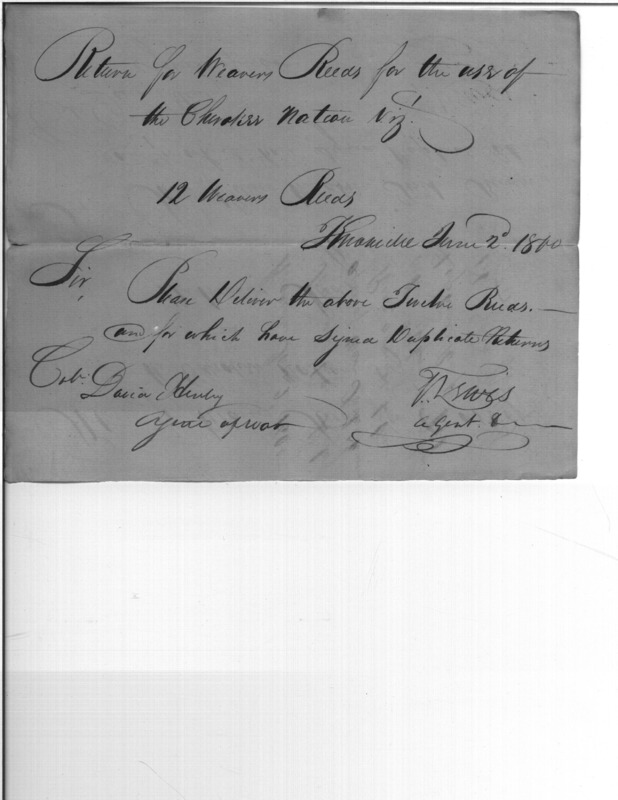 Return for Weavers Reeds for the use of
the Cherokee Nation Viz.
12 Weavers Reeds
Knoxville June 2d. 1800
Sir,
Please Deliver the above Twelve Reeds. —
and for which have Signed Duplicate Returns
Colo. David Henley
Agent of War
T. Lewis
agent &